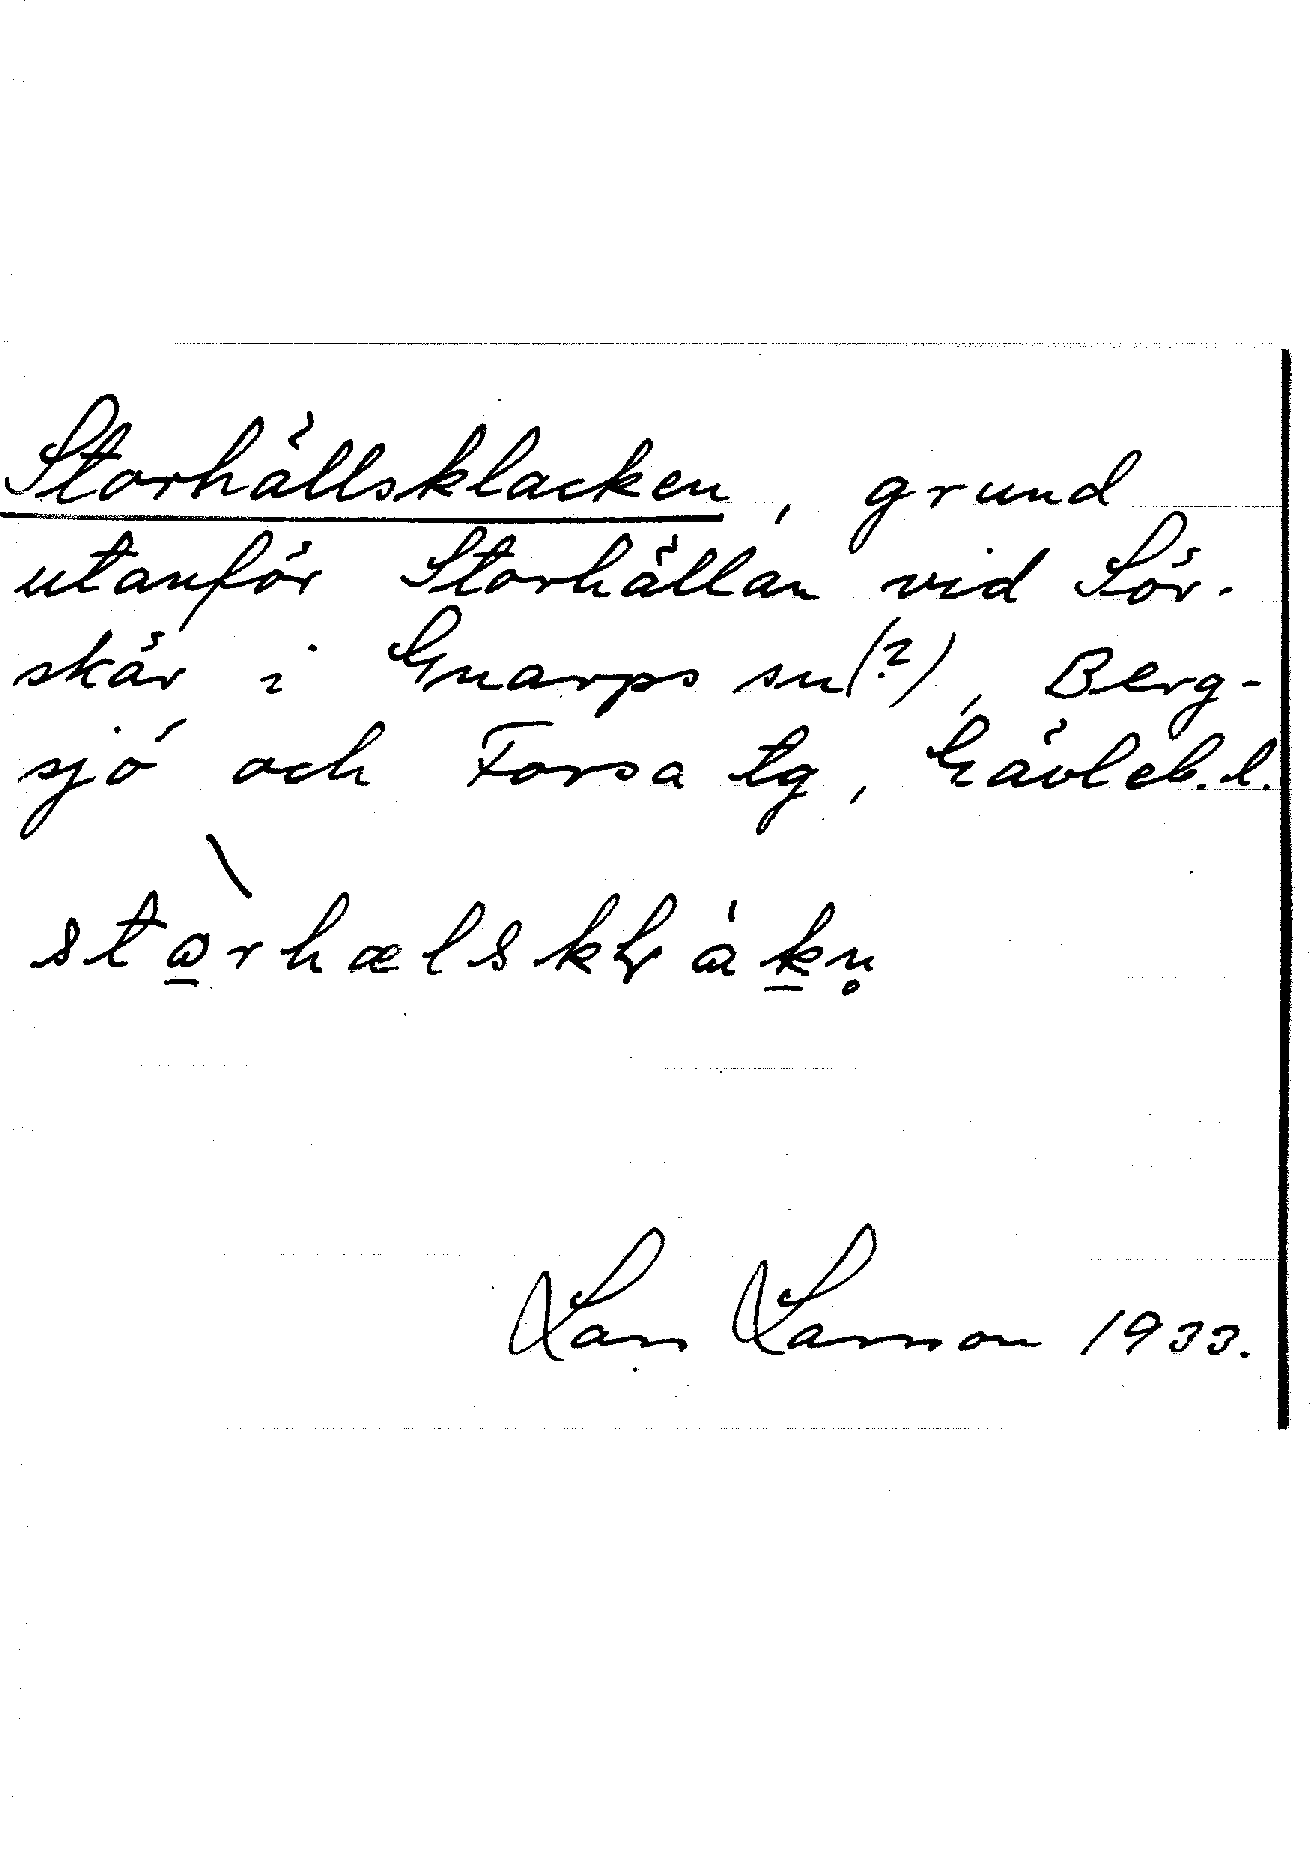 Storhällsklacken, grund
utanför Storhällan vid Sör-
skär i Gnarps sn(?), Berg-
sjö och Forsa tg, Gävleb. l.
Lars Larsson 1933.